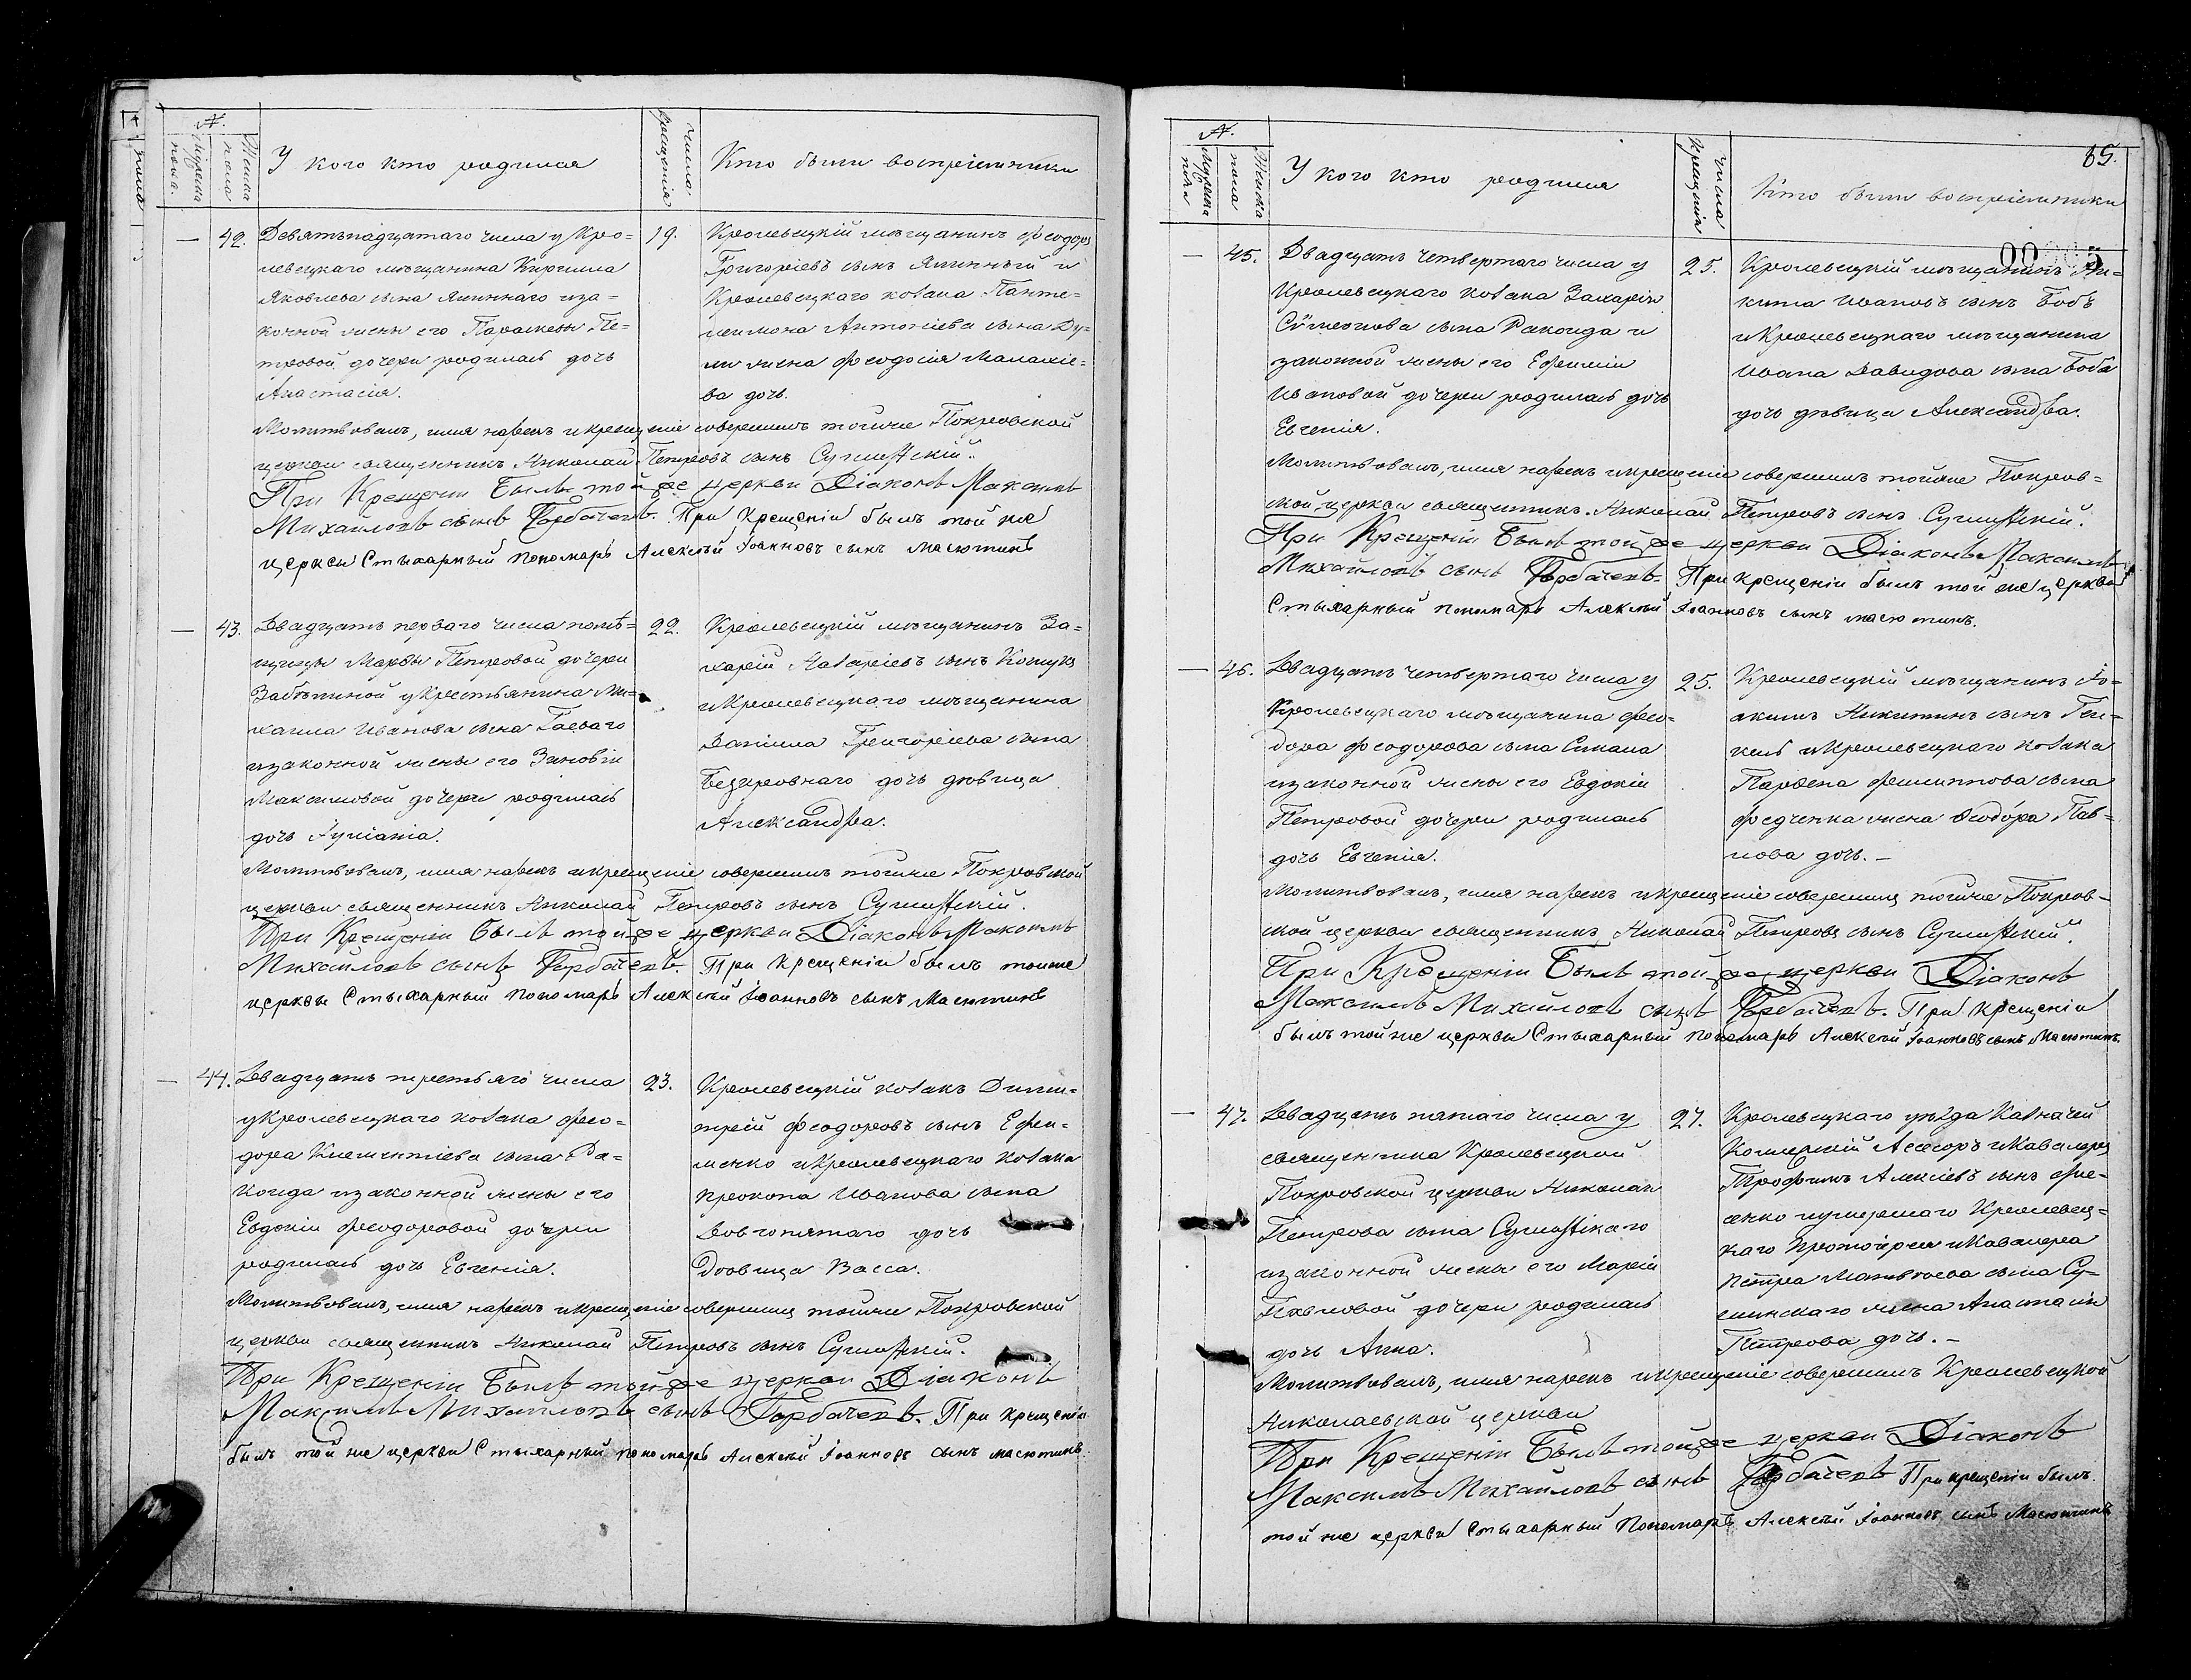 №.
Мужеска пола.
Женска пола
У кого кто родился
Числа. крещенія
Кто были воспріемники
42.
Девятьнадцатаго числа у Кро=
левецкаго мѣщанина Кирилла
Яковлева сына Ялиннаго и за=
конной жены его Параскевы Пе=
тровой дочери родилась дочь
Анастасія.
19.
Кролевецкій мѣщанинъ Феодоръ
Григоріевъ сынъ Ялинный и
Кролевецкаго козака Панте=
леимона Антоніева сына Ду=
ли жена Феодосія Малахіе=
ва дочь.
Молитвовалъ, имя нарекъ и крещеніе совершилъ тойже Покровской
церкви священникъ Николай Петровъ сынъ
При Крещеніи Былъ тойже церкви Діаконъ Максимъ
Михайловъ сынъ Горбачевъ. При Крещеніи былъ той же
церкви Стыхарный пономарь Алексѣй Іоанновъ сынъ Масютинъ
43.
Двадцать перваго числа помѣ=
щицы Марфы Петровой дочери
Забѣлиной у Крестьянина Ми=
хаила Иванова сына Гаеваго
и законной жены его Зиновіи
Максимовой дочери родилась
дочь Іуліанія.
22.
Кролевецкій мѣщанинъ За=
харій Назаріевъ сынъ
и Кролевецкаго мѣщанина
Даніила Григоріева сына
дочь дѣвица
Александра.
Молитвовалъ, имя нарекъ и крещеніе совершилъ тойже Покровской
церкви священникъ Николай Петровъ сынъ
При Крещеніи Былъ тойже церкви Діаконъ Максимъ
Михайловъ сынъ Горбачевъ. При Крещеніи былъ тойже
церквы Стыхарный пономарь Алексѣй Іоанновъ сынъ Масютинъ
44.
Двадцать третьяго числа
у Кролевецкаго козака Фео=
дора Климентіева сына Ра=
коида и законной жены его
Евдокіи Феодоровой дочери
родилась дочь Евгенія.
23.
Кролевецкій козакъ Дими=
трій Феодоровъ сынъ Ефи=
менко и Кролевецкаго козака
Прокопа Иванова сына
Довгопятаго дочь
Дѣвица Васса.
Молитвовалъ, имя нарекъ и крещеніе совершилъ тойже Покровской
церкви священникъ Николай Петровъ сынъ
При Крещеніи Былъ тойже церкви Діаконъ
Максимъ Михайловъ сынъ Горбачевъ. При крещеніи
былъ той же церкви Стыхарный пономарь Алексѣй Іоанновъ сынъ Масютинъ.
85.
№.
Мужеска пола
Женска пола
У кого кто родился
Числа Крещенія
Кто были воспріемники
45.
Двадцать четвертаго числа у
Кролевецкаго козака Захарія
Сѵмеонова сына Ракоида и
законной жены его Ефиміи
Ивановой дочери родилась дочь
Евгенія.
25.
Кролевецкій мѣщанинъ Ни=
кита Ивановъ сынъ Бобъ
и Кролевецкаго мѣщанина
Ивана Давидова сына Боба
дочь дѣвица Александра.
Молитвовалъ, имя нарекъ и крещеніе совершилъ тойже Покров=
ской церкви священникъ Николай Петровъ сынъ
При Крещеніи Былъ тойже церкви Діаконъ Максимъ
Михайловъ сынъ Горбачевъ. При крещеніи былъ той же церкви
Стыхарный пономарь Алексѣй Іоанновъ сынъ Масютинъ.
46.
Двадцать четвертаго числа у
Кролевецкаго мѣщанина Фео=
дора Феодорова сына Сикала
и законной жены его Евдокіи
Петровой дочери родилась
дочь Евгенія.
25.
Кролевецкій мѣщанинъ Іо=
акимъ Никитинъ сынъ
и Кролевецкаго козака
Парѳена Филиппова сына
Федченка жена Ѳеодора Пав=
лова дочь.
Молитвовалъ, имя нарекъ и крещеніе совершилъ тойже Покров=
ской церкви священникъ Николай Петровъ сынъ
При Крещеніи Былъ тойже церкви Діаконъ
Максимъ Михайловъ сынъ Горбачевъ. При Крещеніи
былъ той же церквы Стыхарный пономарь Алексѣй Іоанновъ сынъ Масютинъ.
47.
Двадцать пятаго числа у
священника Кролевецкой
Покровской церкви Николая
Петрова сына
и законной жены его Маріи
Павловой дочери родилась
дочь Анна.
27.
Кролевецкаго уѣзда Казначей
Коллежскій Асесоръ и Кавалеръ
Трофимъ Алексіевъ сынъ
и умершаго Кролевец=
каго Протоіерея и Кавалера
Петра Матвѣева сына
жена Анастасія
Петрова дочь.
Молитвовалъ, имя нарекъ и крещеніе совершилъ Кролевецкой
Николаевской церкви
При Крещеніи Былъ тойже церкви Діаконъ
Максимъ Михайловъ сынъ Горбачевъ При крещеніи былъ
той же церкви Стыхарный Пономарь Алексѣй Іоанновъ сынъ Масютинъ